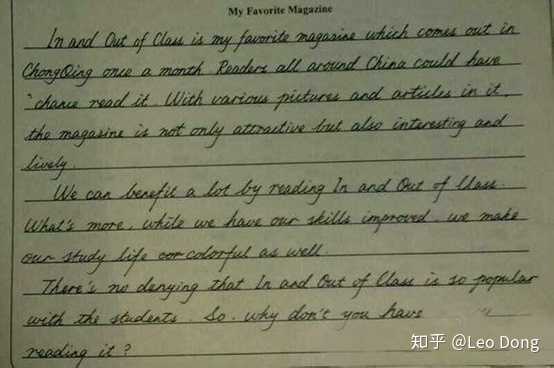 My Favorite Magazine
In and Out of Class is my favorite magazine which comes out in
ChongQing once a month. Readers all around China could have
chance read it. With various pictures and articles in it,
the magazine is not only attractive but also interesting and
lively.
We can benefit a lot by reading In and Out of Class.
What's more, while we have our skills improved, we make
our study life colorful as well.
There's no denying that In and Out of Class is so popular
with the students. So, why don't you have
reading it?
知乎 @Leo Dong